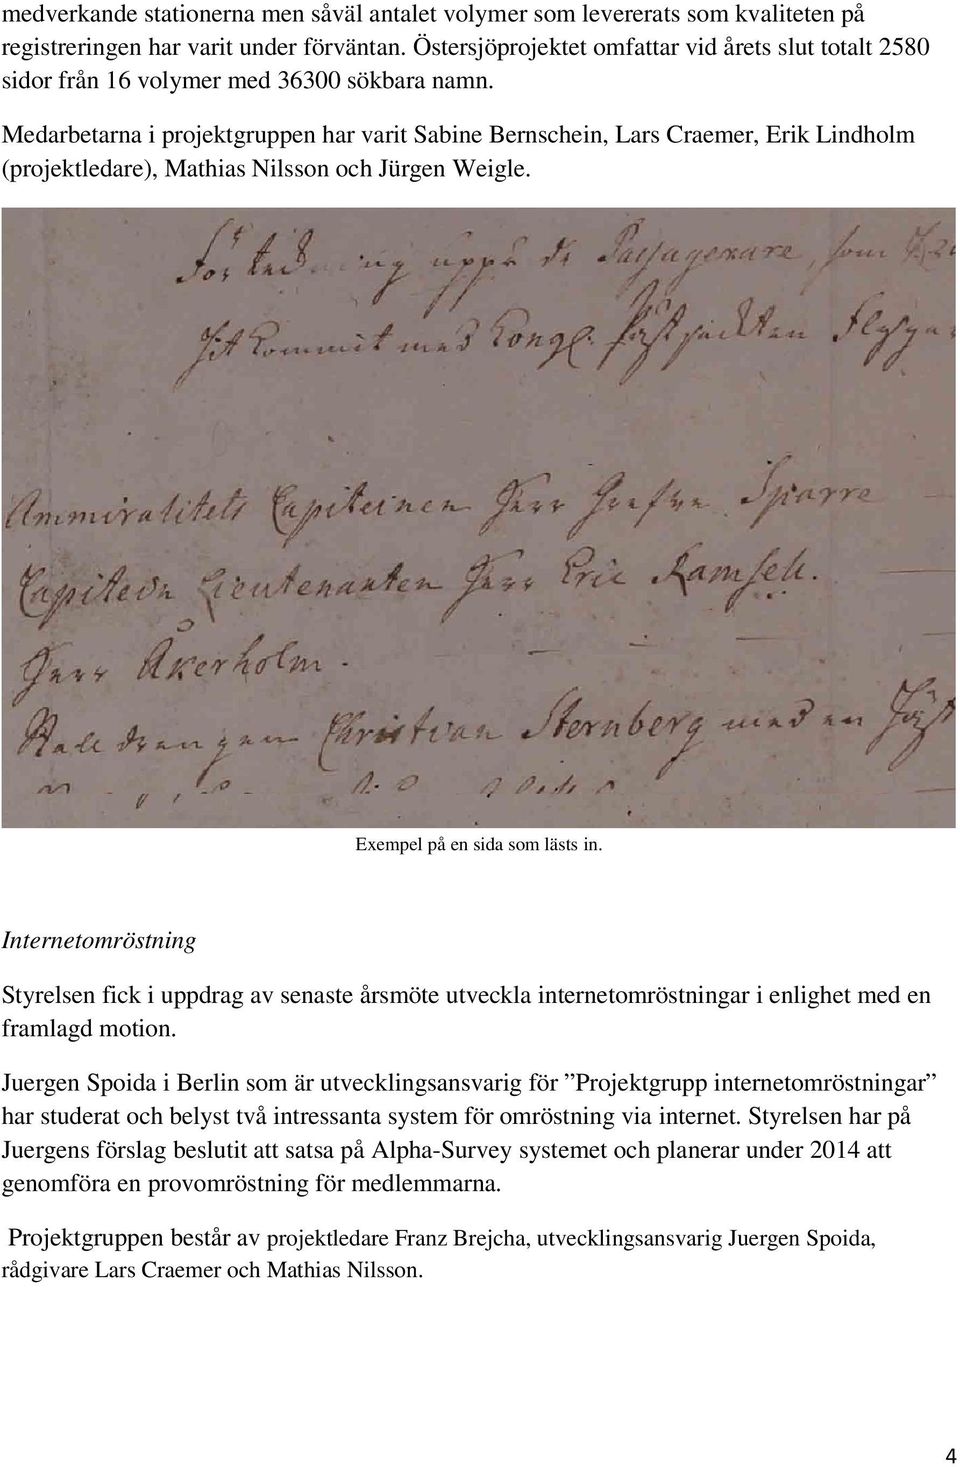 medverkande stationerna men såväl antalet volymer som levererats som kvaliteten på
registreringen har varit under förväntan. Östersjöprojektet omfattar vid årets slut totalt 2580
sidor från 16 volymer med 36300 sökbara namn.
Medarbetarna i projektgruppen har varit Sabine Bernschein, Lars Craemer, Erik Lindholm
(projektledare), Mathias Nilsson och Jürgen Weigle.
Förtedning uppå de Passagerare, som
hit kommit med Kongl. Påst jackten
Ammiralitets Capiteinen Herr Grefve Sparre
Capitein Lieutenanten Herr Eric Ramsell.
Herr Åkerholm.
Stalldrengen Christian Sternberg med en Häst
Exempel på en sida som lästs in.
Internetomröstning
Styrelsen fick i uppdrag av senaste årsmöte utveckla internetomröstningar i enlighet med en
framlagd motion.
Juergen Spoida i Berlin som är utvecklingsansvarig för ”Projektgrupp internetomröstningar”
har studerat och belyst två intressanta system för omröstning via internet. Styrelsen har på
Juergens förslag beslutit att satsa på Alpha-Survey systemet och planerar under 2014 att
genomföra en provomröstning för medlemmarna.
Projektgruppen består av projektledare Franz Brejcha, utvecklingsansvarig Juergen Spoida,
rådgivare Lars Craemer och Mathias Nilsson.
4